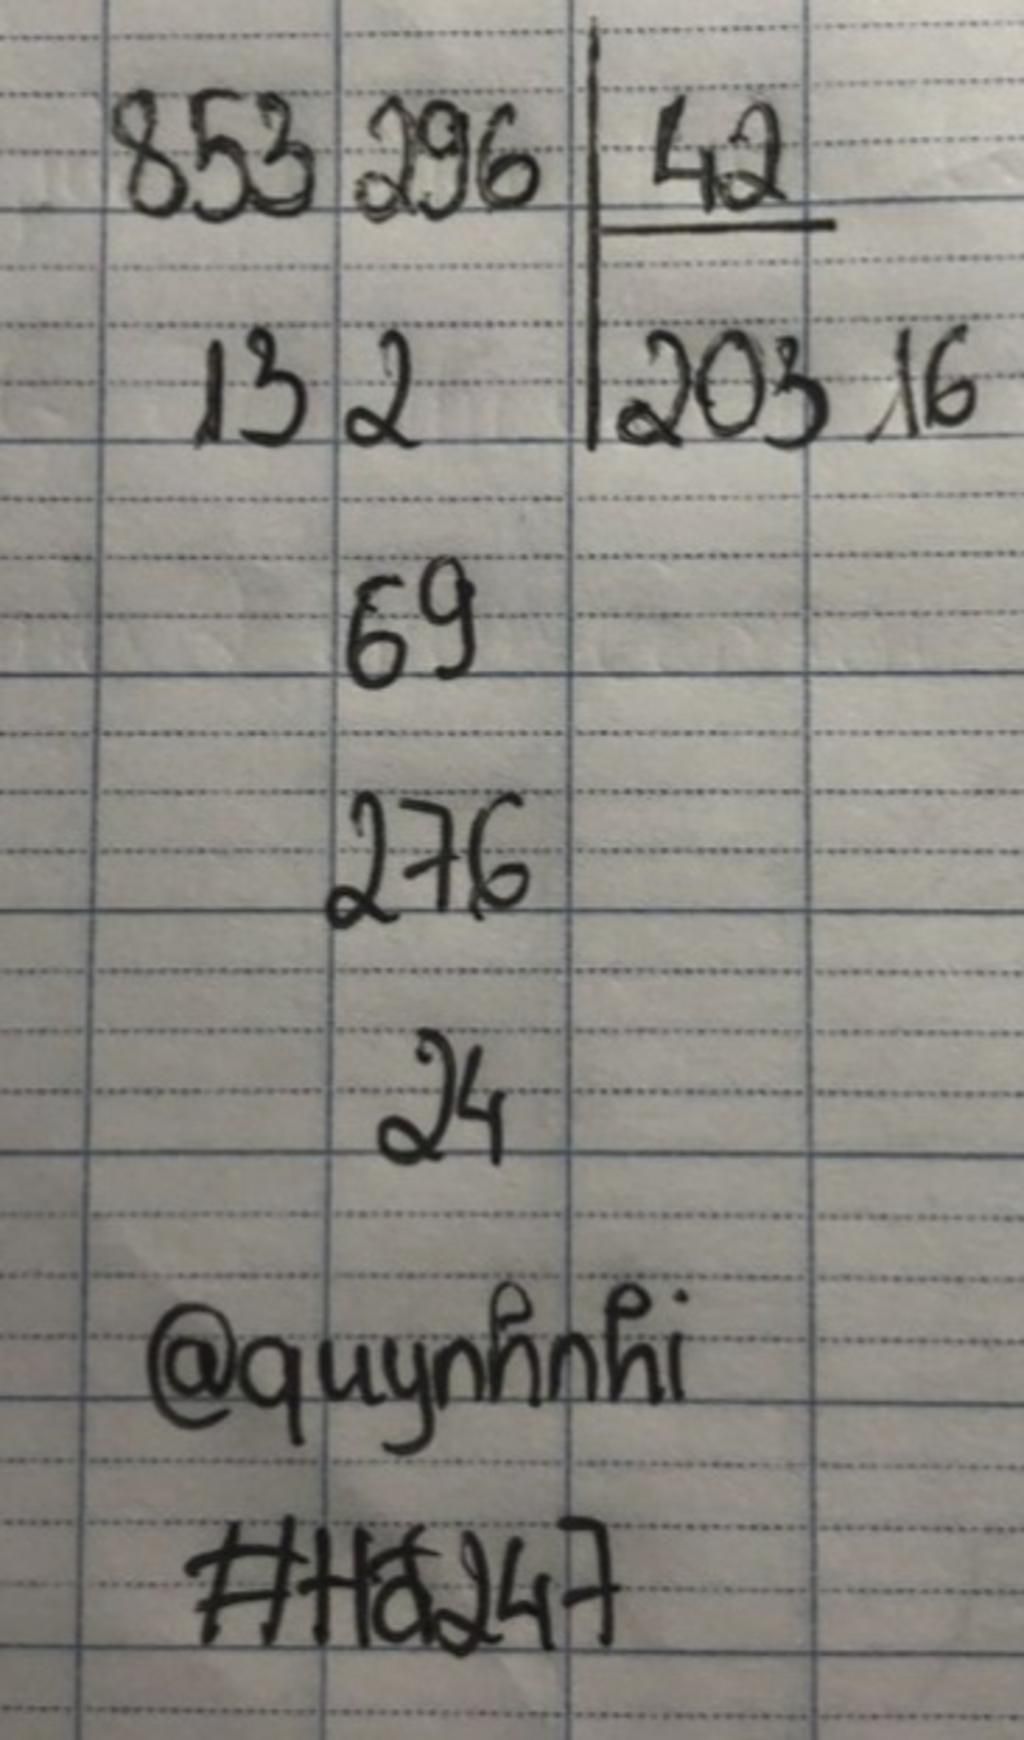 853 296 42
13 2 203 16
69
276
24
@quynhnhi
#Hd247